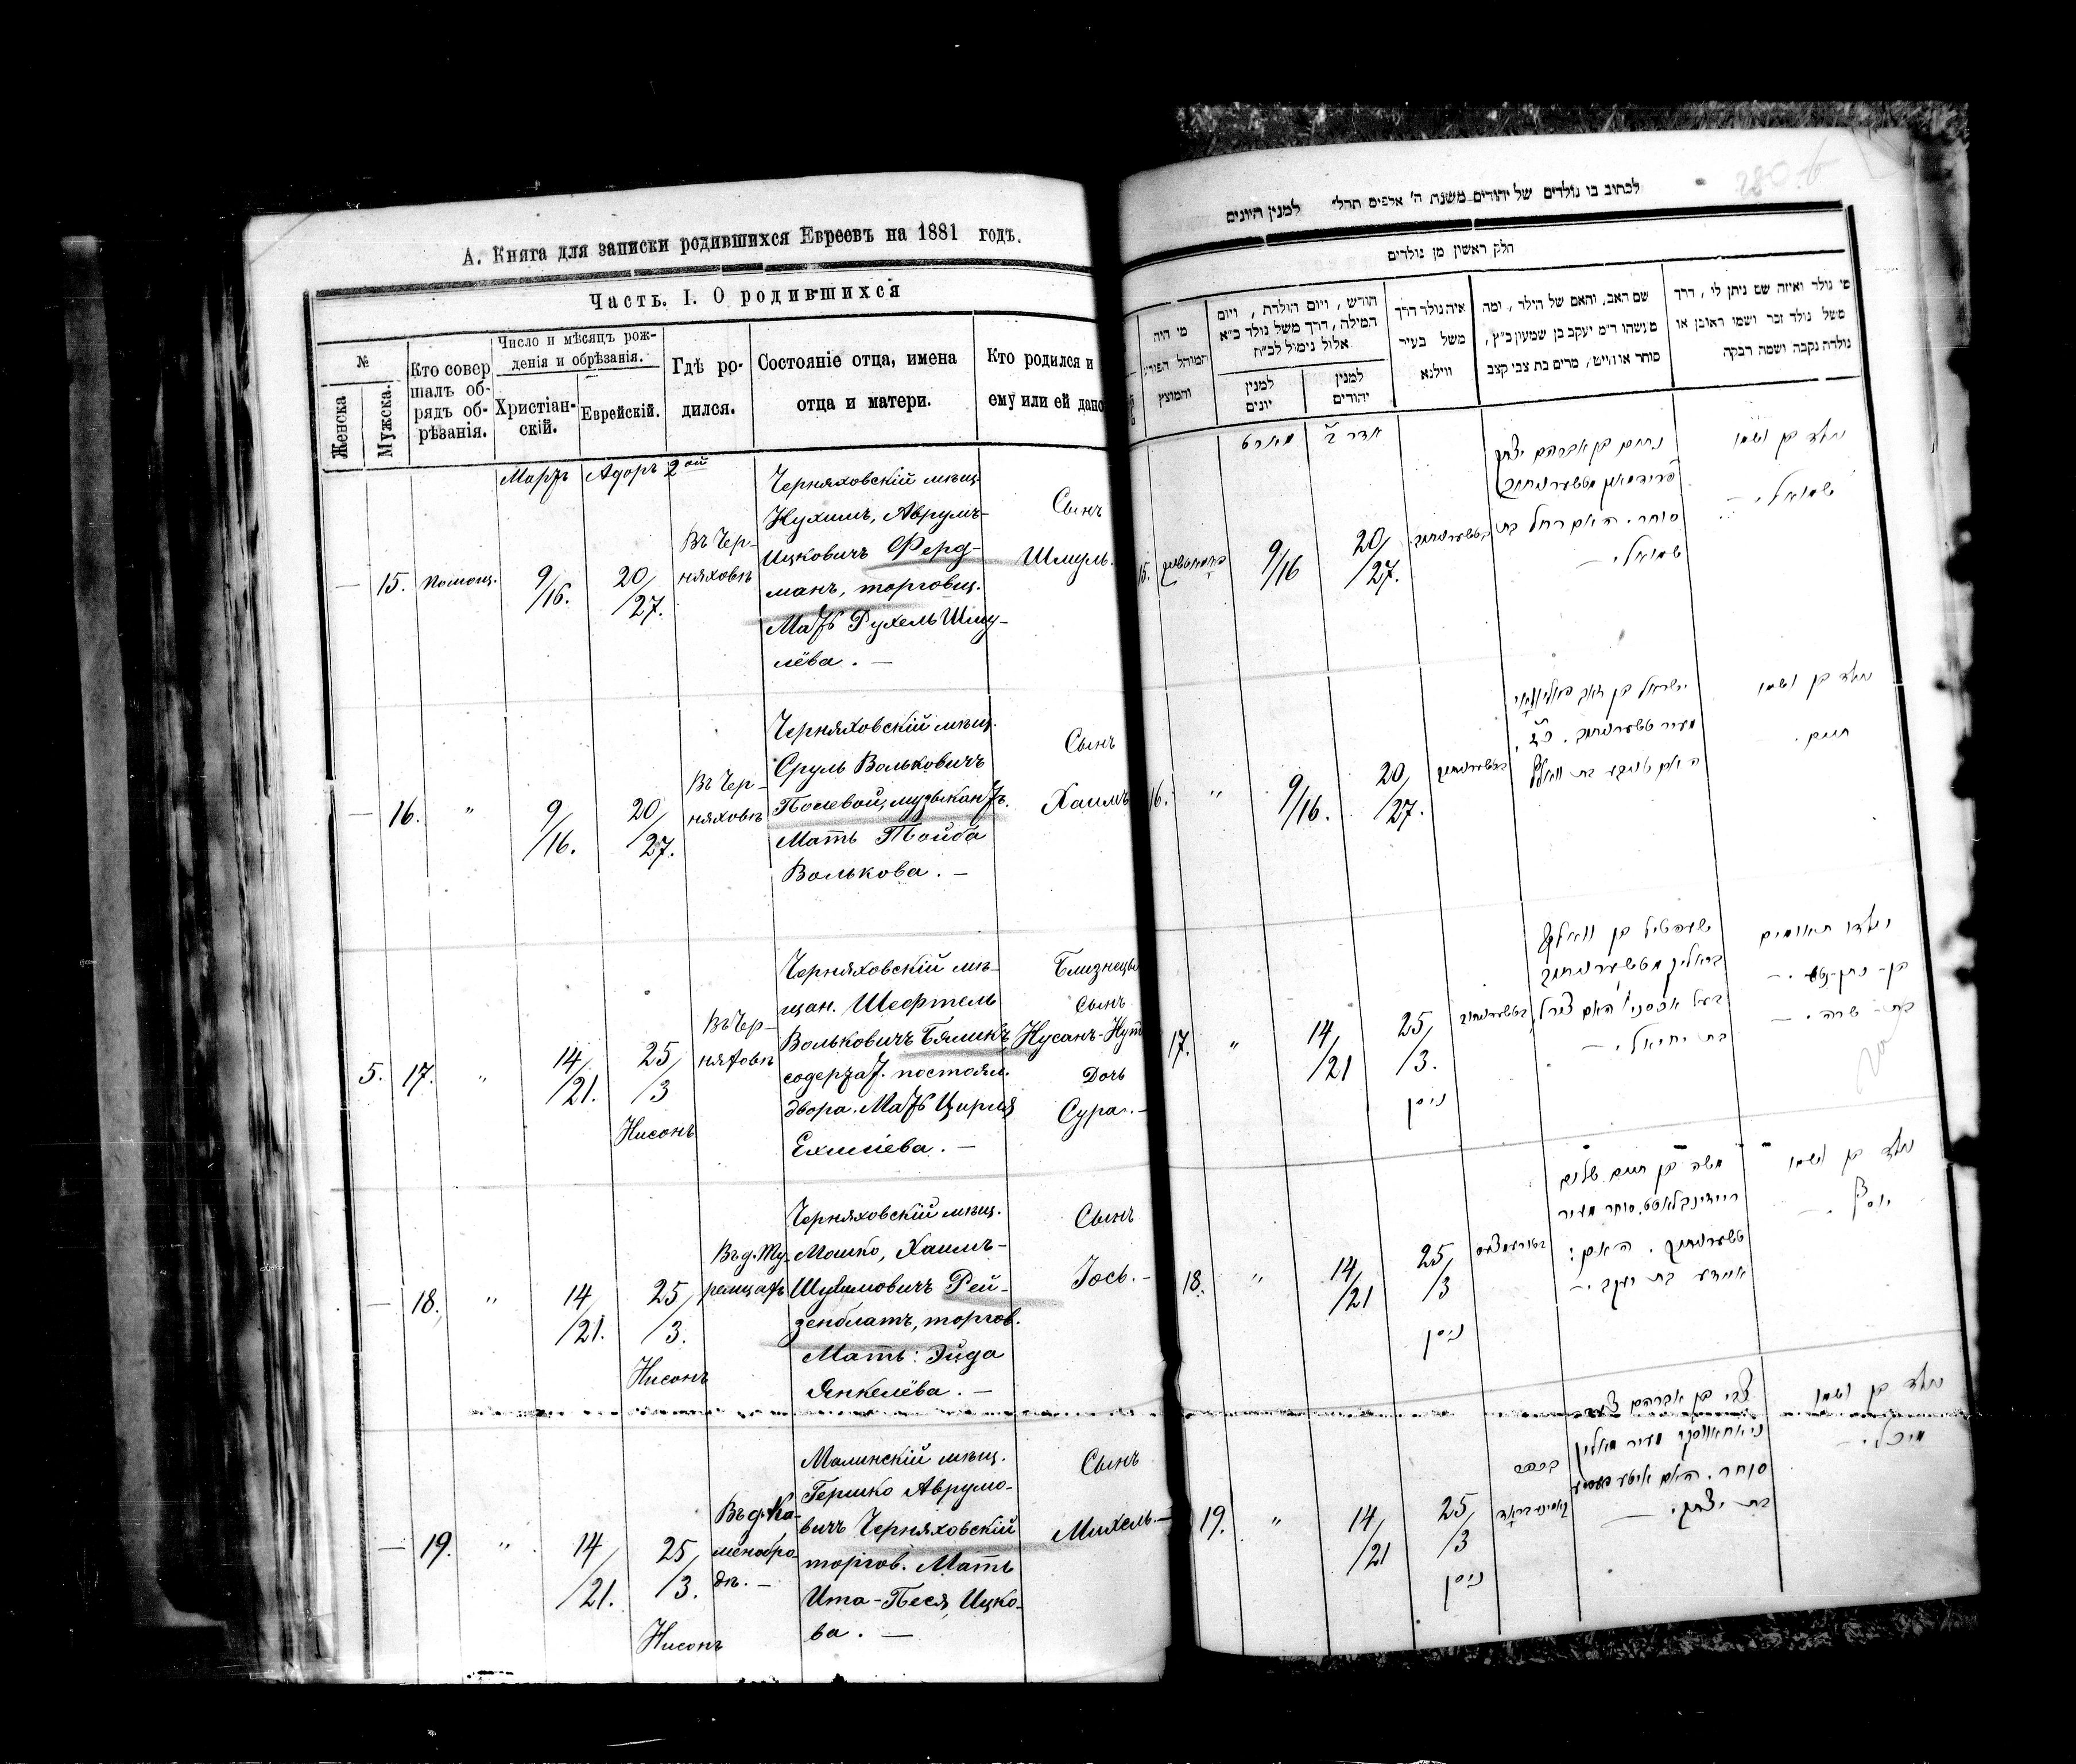 А. Книга для записки родившихся Евреевъ на 1881 годъ.
Часть. I. О родившихся
№
Женска
Мужска.
Кто совер
шалъ об-
рядъ об-
рѣзанія.
Число и мѣсяцъ рож-
денія и обрѣзанія.
Христіан-
скій.
Еврейскій.
Гдѣ ро-
дился.
Состояніе отца, имена
отца и матери.
Кто родился и
ему или ей дано
Мартъ
Адоръ 2ой
—
15.
Помощ.
9/16.
20/27.
Въ Чер-
няховѣ
Черняховскій мѣщ.
Нухимъ, Аврумъ-
Ицковичъ Ферд-
манъ, торговц.
Мать Рухель Шму-
лёва. —
Сынъ
Шмуль.
—
16.
"
9/16.
20/27.
Въ Чер-
няховѣ
Черняховскій мѣщ.
Сруль Вольковичъ
Полевой, музыкантъ.
Мать Тойба
Волькова. —
Сынъ
Хаимъ
5.
17.
"
14/21.
25/3
Нисонъ
Въ Чер-
няховѣ
Черняховскій мѣ-
щан. Шефтель
Вольковичъ Бяликъ,
содержат. постоял.
двора. Мать Цирля
Ехилiева. —
Близнецы
Сынъ
Нусанъ-Нут
Дочь
Сура. —
—
18.
"
14/21.
25/3.
Нисонъ
Въ д. Ту-
Черняховскій мѣщ.
Мошко, Хаимъ-
Шулимовичъ Рей-
зенблатъ, торгов.
Мать: Эйда
Янкелёва. —
Сынъ
Іось. —
—
19.
"
14/21.
25/3.
Нисонъ
Въ д. Ка-
менобро-
дѣ. —
Малинскій мѣщ.
Гершко Аврумо-
вичъ Черняховскій
торгов. Мать
Ита-Песя, Ицко-
ва. —
Сынъ
Михель. —
לכתוב בו נולדים של יהודים משנת ה' אלפים תרל" למנין היונים
חלק ראשון מן נולדים
מי היה
המוהל הפורע
והמוצץ
חודש, ויום הולדת, ויום
המילה, דרך משל נולד כ"א
אלול נימול לכ"ח
למנין
יונים
למנין
יהודים
איה נולד דרך
משל בעיר
ווילנא
שם האב, והאם של הילד, ומה
מעשהו ר"מ יעקב בן שמעון כ"ץ,
סוחר או חייט, מרים בת צבי קצב
מי נולד ואיזה שם ניתן לו, דרך
משל נולד זכר ושמו ראובן או
נולדה נקבה ושמה רבקה
מארט
אדר ב'
15.
9/16
20/27.
נחום בן אברהם יצחק
סוחר. האם רחל בת
שמואל. —
נולד בן ושמו
שמואל. —
16.
"
9/16.
20/27.
ישראל בן זאב
האם טויבע בת וואלף
נולד בן ושמו
חיים.
17.
"
14/21
25/3.
ניסן
שעפטיל בן וואלף
ביאליק מטשערניחוב
בעל אכסני' האם צירל
בת יחיאל. —
נולדו תאומים
בן - נתן-נטע. —
בת - שרה. —
18.
"
14/21
25/3
ניסן
משה בן חיים שלום
סוחר מעיר
טשערניחוב. האם:
איידע בת יעקב. —
נולד בן ושמו
יוסף. —
19.
"
14/21
25/3
ניסן
בכפר
קאמינעבראד
צבי בן אברהם
מעיר מאלין
סוחר. האם איטע פעסיע
בת יצחק. —
נולד בן ושמו
מיכל. —